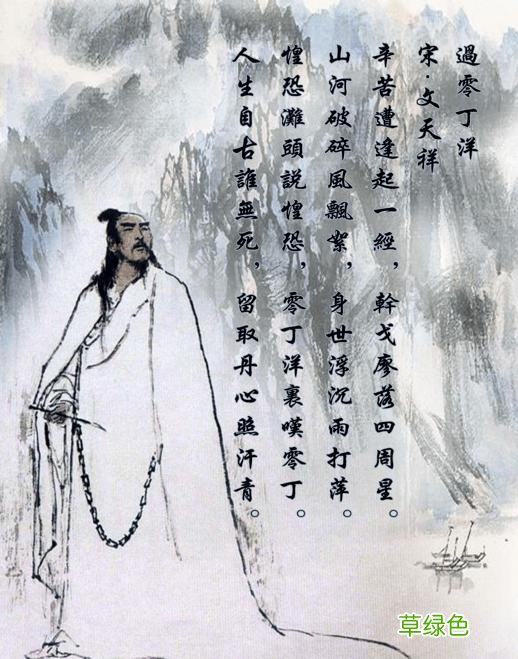 過零丁洋
宋·文天祥
辛苦遭逢起一經，幹戈廖落四周星。
山河破碎風飄絮，身世浮沉雨打萍。
惶恐灘頭説惶恐，零丁洋裏嘆零丁。
人生自古誰無死，留取丹心照汗青。
草绿色